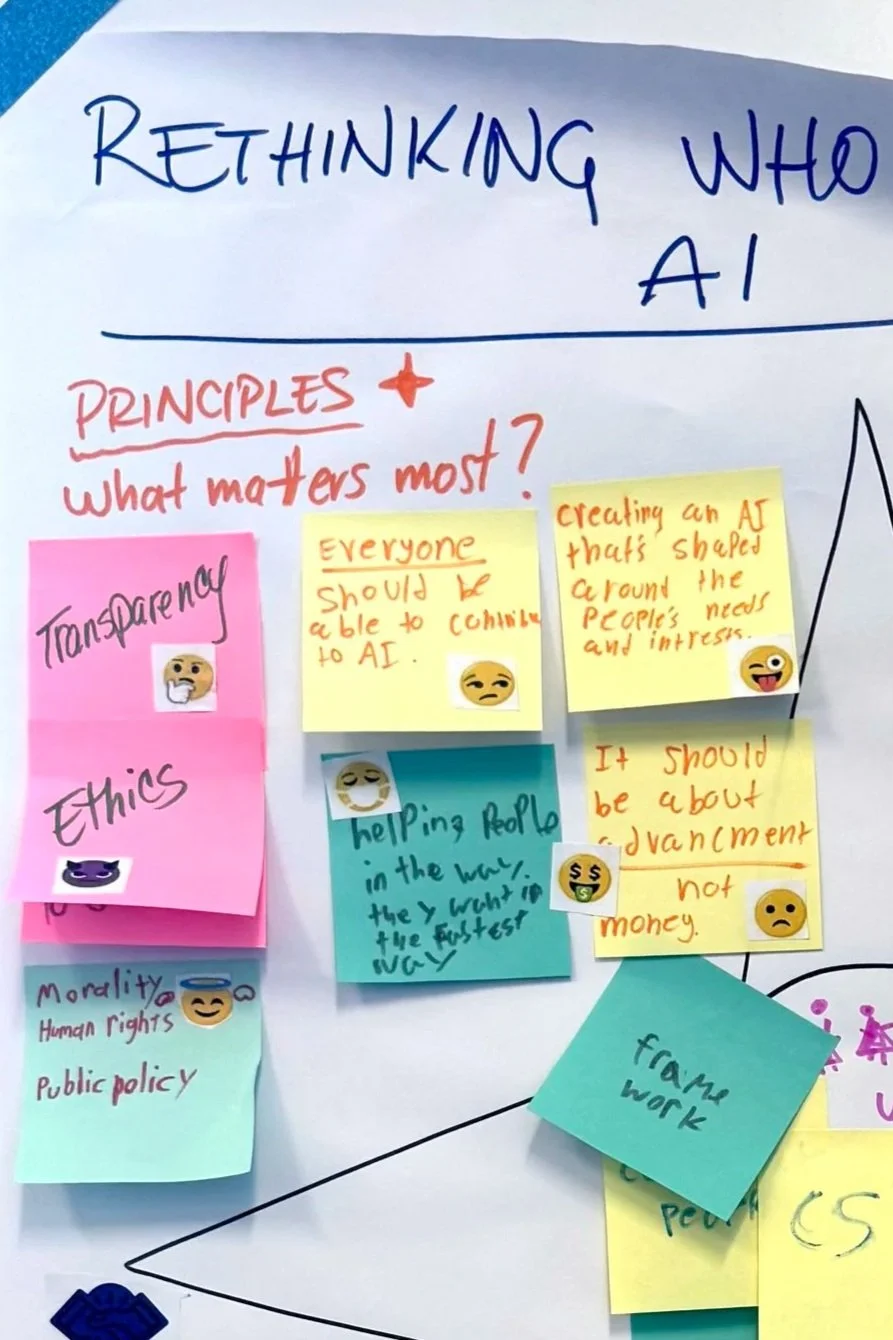 RETHINKING WHO
AI
PRINCIPLES
What matters most?
Transparency
Ethics
Everyone
should be
able to
to AI.
creating an AI
that's shaped
around the
PEOPLE's needs
and intrests.
helping People
in the way
they want in
the fastest
way
It should
be about
advancment
not
money.
Morality
Human rights
Public policy
frame
work
CS